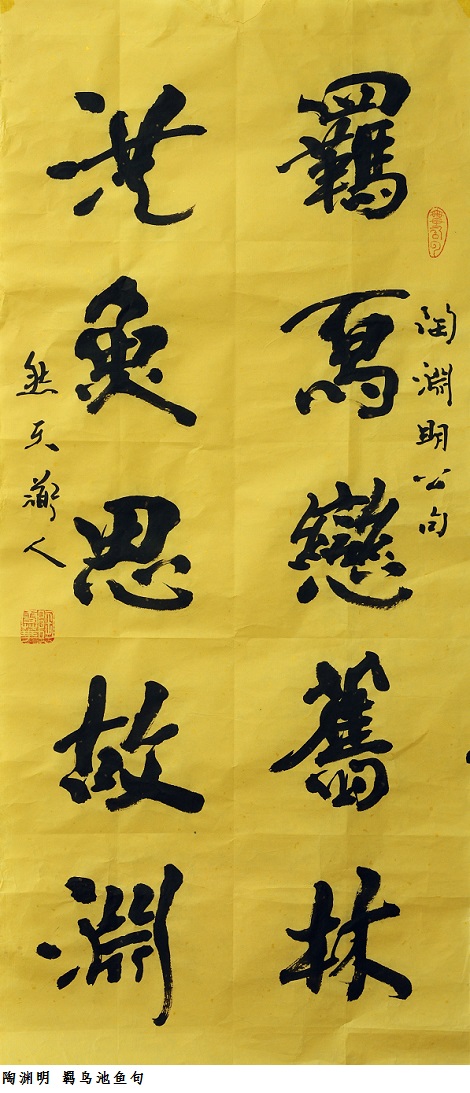 陶淵明公句
羈鳥戀舊林
池魚思故淵
人
陶渊明 羁鸟池鱼句